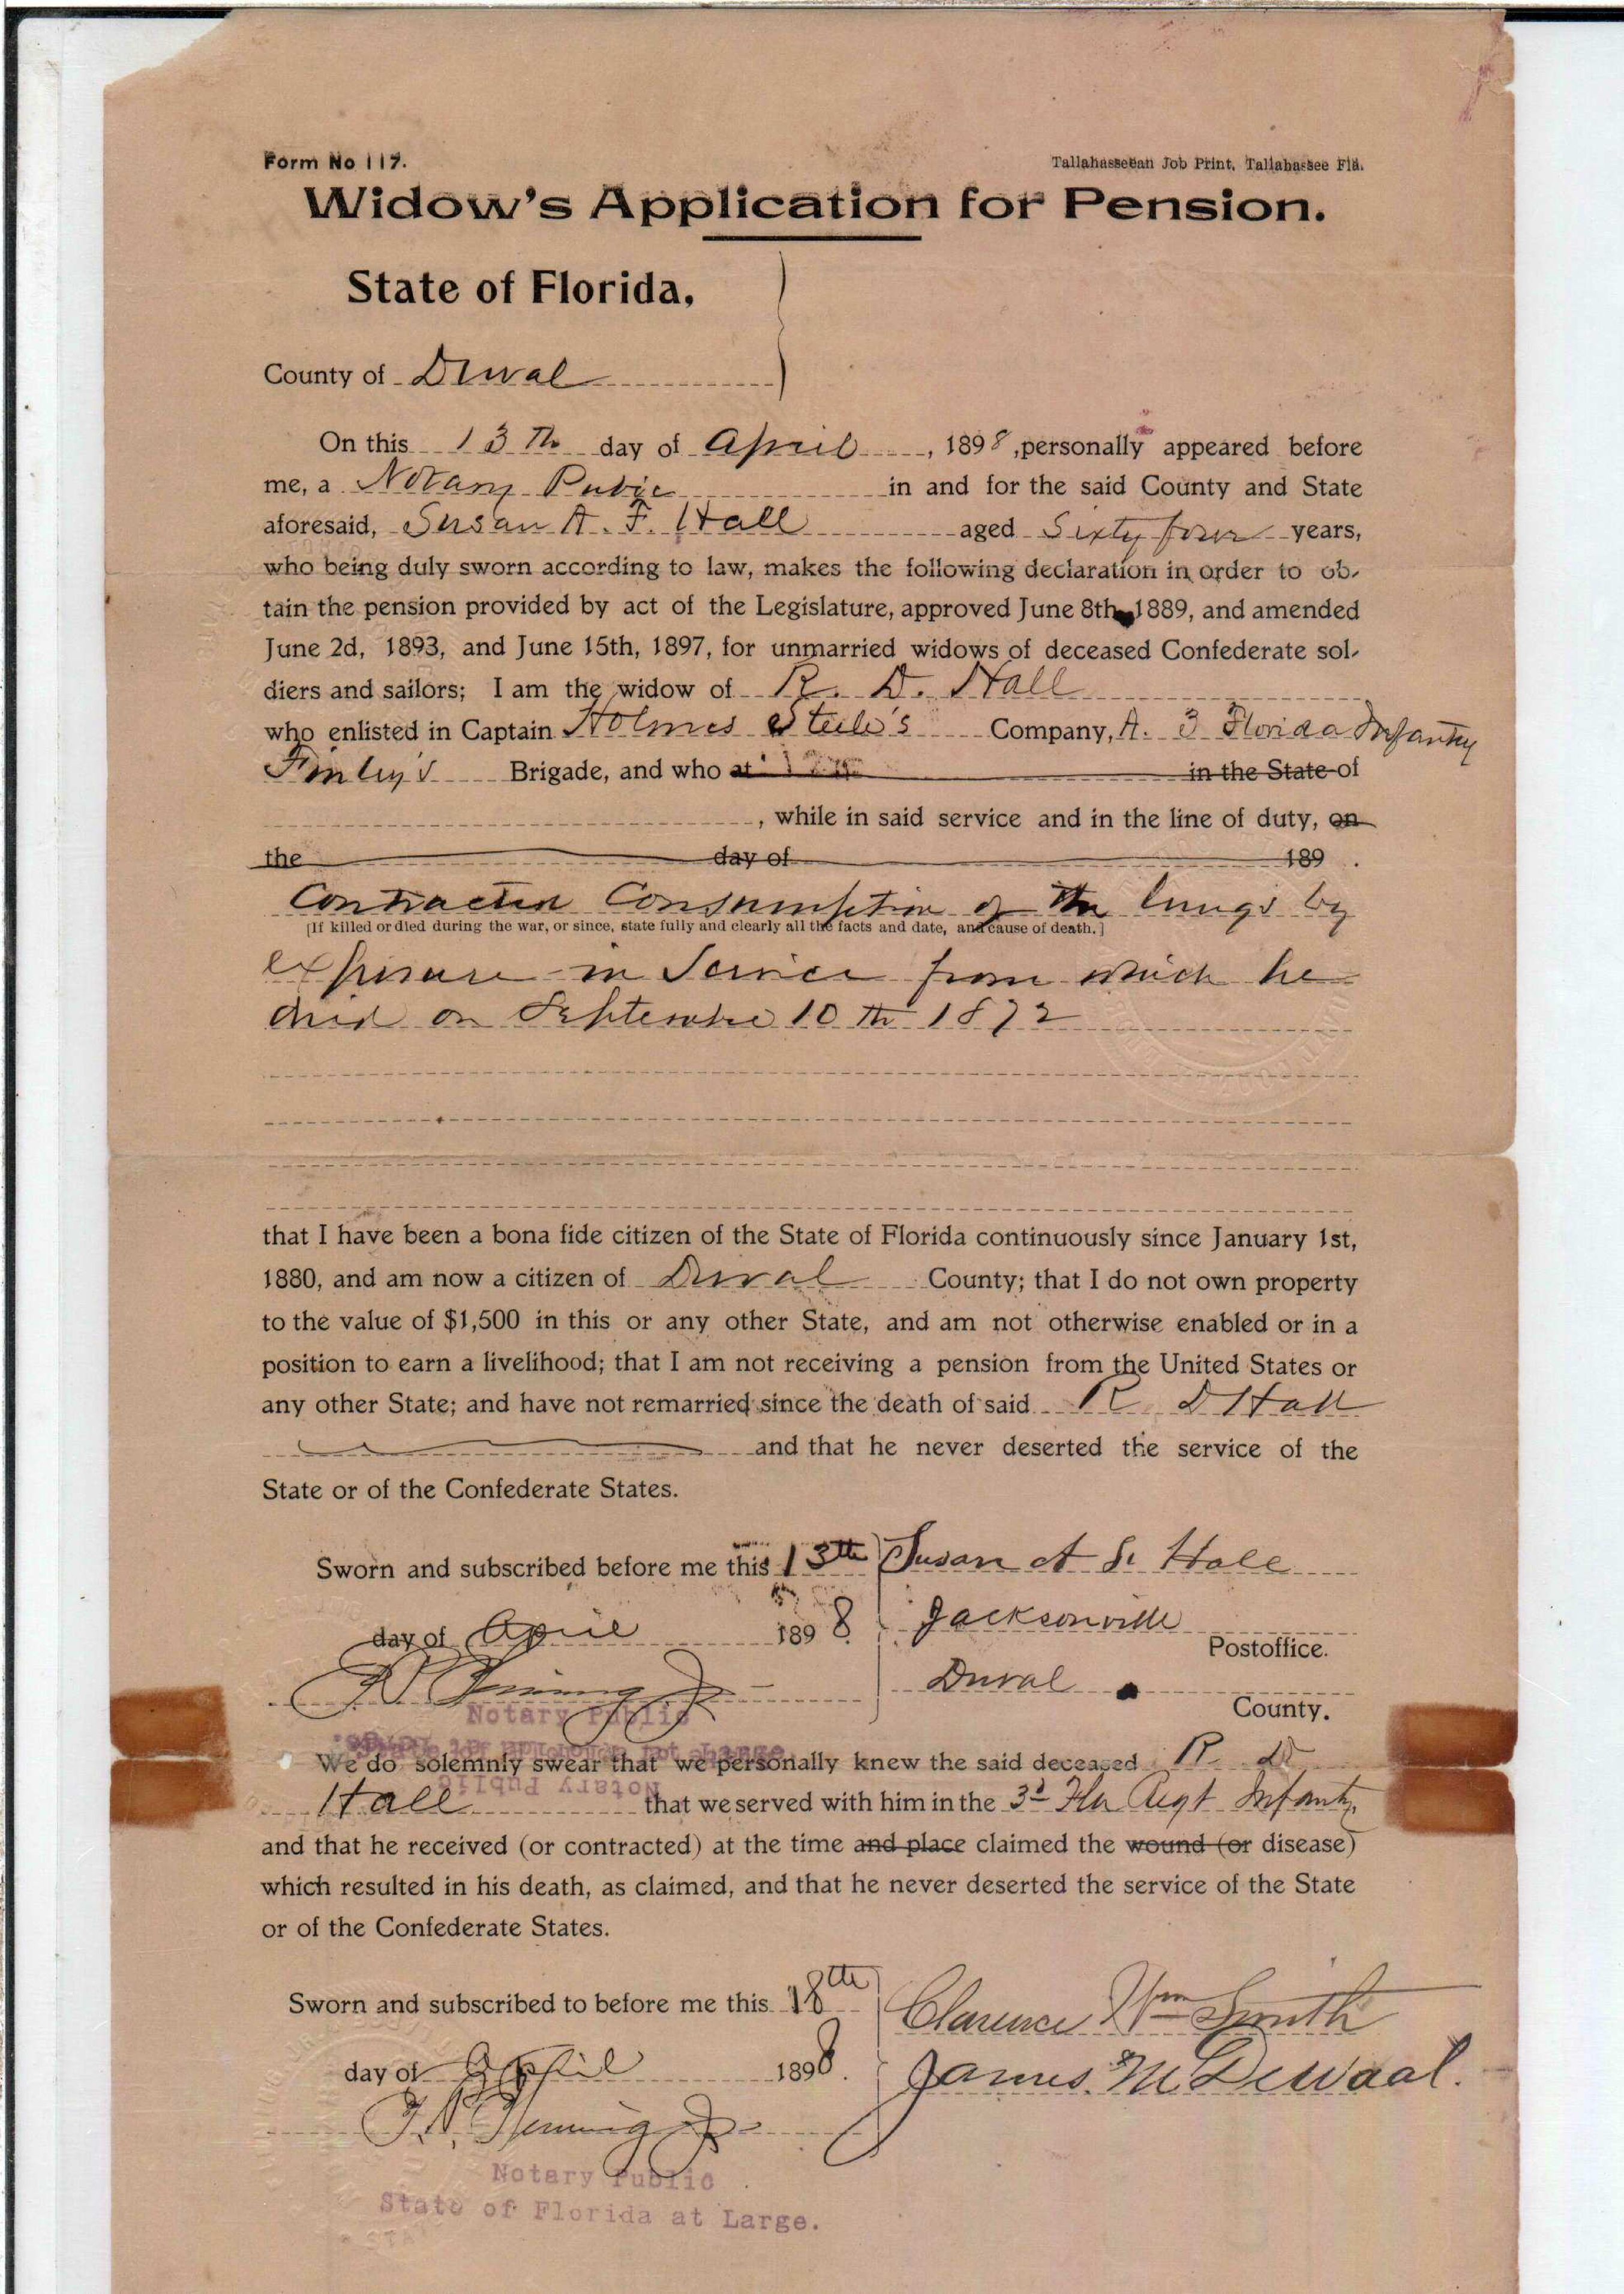 Form No 117.
Tallahasseean Job Print, Tallahassee Fla.
Widow's Application for Pension.
State of Florida,
County of Duval
On this 13 Th day of April, 1898, personally appeared before
me, a Notary Pubic in and for the said County and State
aforesaid, Susan A. F. Hall aged Sixty four years,
who being duly sworn according to law, makes the following declaration in order to ob-
tain the pension provided by act of the Legislature, approved June 8th, 1889, and amended
June 2d, 1893, and June 15th, 1897, for unmarried widows of deceased Confederate sol-
diers and sailors; I am the widow of R. D. Hall
who enlisted in Captain Holmes Steele's Company, A. 3 Florida Infantry
Finley's Brigade, and who at in the State of
, while in said service and in the line of duty, on
the day of 189 .
Contracted Consumption of the lungs by
[If killed or died during the war, or since, state fully and clearly all the facts and date, and cause of death.]
exposure in Service from which he
died on September 10 th 1872
that I have been a bona fide citizen of the State of Florida continuously since January 1st,
1880, and am now a citizen of Duval County; that I do not own property
to the value of $1,500 in this or any other State, and am not otherwise enabled or in a
position to earn a livelihood; that I am not receiving a pension from the United States or
any other State; and have not remarried since the death of said R D Hall
and that he never deserted the service of the
State or of the Confederate States.
Sworn and subscribed before me this 13th Susan A F. Hall
day of April 1898 Jacksonville
Postoffice.
Duval
County.
Notary Public
We do solemnly swear that we personally knew the said deceased R. D
Notary Public
Hall that we served with him in the 3d Fla Regt Infantry,
and that he received (or contracted) at the time and place claimed the wound (or disease)
which resulted in his death, as claimed, and that he never deserted the service of the State
or of the Confederate States.
Sworn and subscribed to before me this 18th Clarence Wm Smith
day of April 1898. James. M DeWaal.
Notary Public
State of Florida at Large.